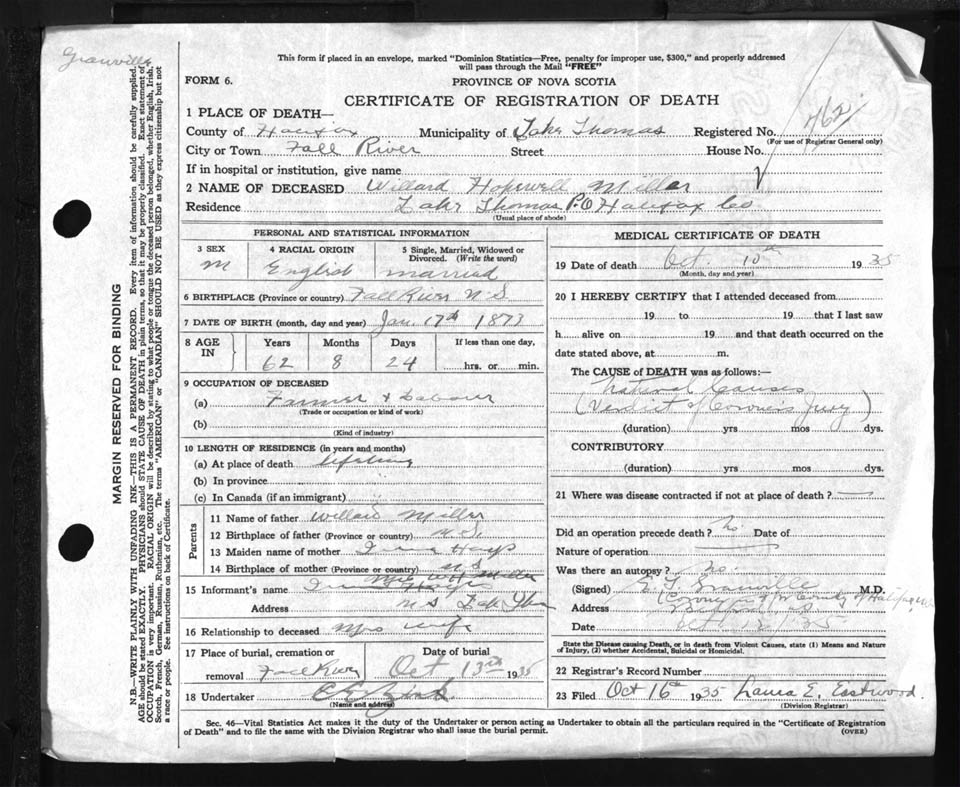 Granville
This form if placed in an envelope, marked "Dominion Statistics—Free, penalty for improper use, $300," and properly addressed
will pass through the Mail "FREE"
FORM 6.
PROVINCE OF NOVA SCOTIA
CERTIFICATE OF REGISTRATION OF DEATH
1 PLACE OF DEATH—
County of Halifax Municipality of Lake Thomas Registered No. 762
(For use of Registrar General only)
City or Town Fall River Street House No.
If in hospital or institution, give name
2 NAME OF DECEASED Willard Hopewell Miller
Residence Lake Thomas P.O Halifax Co
(Usual place of abode)
PERSONAL AND STATISTICAL INFORMATION
3 SEX 4 RACIAL ORIGIN 5 Single, Married, Widowed or
Divorced. (Write the word)
M English married
6 BIRTHPLACE (Province or country) Fall River N.S.
7 DATE OF BIRTH (month, day and year) Jan. 17th 1873
8 AGE IN Years Months Days If less than one day,
62 8 24 hrs. or min.
9 OCCUPATION OF DECEASED
(a) Farmer & Labourer
(Trade or occupation or kind of work)
(b)
(Kind of industry)
10 LENGTH OF RESIDENCE (in years and months)
(a) At place of death lifetime
(b) In province
(c) In Canada (if an immigrant)
Parents
11 Name of father Willard Miller
12 Birthplace of father (Province or country) N.S.
13 Maiden name of mother Hays
14 Birthplace of mother (Province or country) N.S.
Mrs W H Miller
15 Informant's name
Address N S Lake
16 Relationship to deceased Mrs wife
17 Place of burial, cremation or Date of burial
removal Fall River Oct 13th 1935
18 Undertaker
(Name and address)
MEDICAL CERTIFICATE OF DEATH
19 Date of death Oct. 10th 1935
(Month, day and year)
20 I HEREBY CERTIFY that I attended deceased from
19 to 19 that I last saw
h alive on 19 and that death occurred on the
date stated above, at m.
The CAUSE of DEATH was as follows:—
Natural Causes
(Verdict of Coroner's Jury)
(duration) yrs mos dys.
CONTRIBUTORY
(duration) yrs mos dys.
21 Where was disease contracted if not at place of death?
Did an operation precede death? no Date of
Nature of operation
Was there an autopsy? no.
(Signed) Granville M.D.
Coroner in & for County of Halifax
Address
Date Oct 12 '35
State the Disease causing Death, or in death from Violent Causes, state (1) Means and Nature
of Injury, (2) whether Accidental, Suicidal or Homicidal.
22 Registrar's Record Number
23 Filed Oct 16th 1935 Laura E. Eastwood.
(Division Registrar)
Sec. 46—Vital Statistics Act makes it the duty of the Undertaker or person acting as Undertaker to obtain all the particulars required in the "Certificate of Registration
of Death" and to file the same with the Division Registrar who shall issue the burial permit.
(OVER)
MARGIN RESERVED FOR BINDING
N.B.—WRITE PLAINLY WITH UNFADING INK—THIS IS A PERMANENT RECORD. Every item of information should be carefully supplied.
AGE should be stated EXACTLY. PHYSICIANS should STATE CAUSE OF DEATH in plain terms, so that it may be properly classified. Exact statement of
OCCUPATION is very important. RACIAL ORIGIN will be described by stating to what people or tongue the deceased person belonged, whether English, Irish,
Scotch, French, German, Russian, Ruthenian, etc. The terms "AMERICAN" or "CANADIAN" SHOULD NOT BE USED as they express citizenship but not
a race or people. See instructions on back of Certificate.